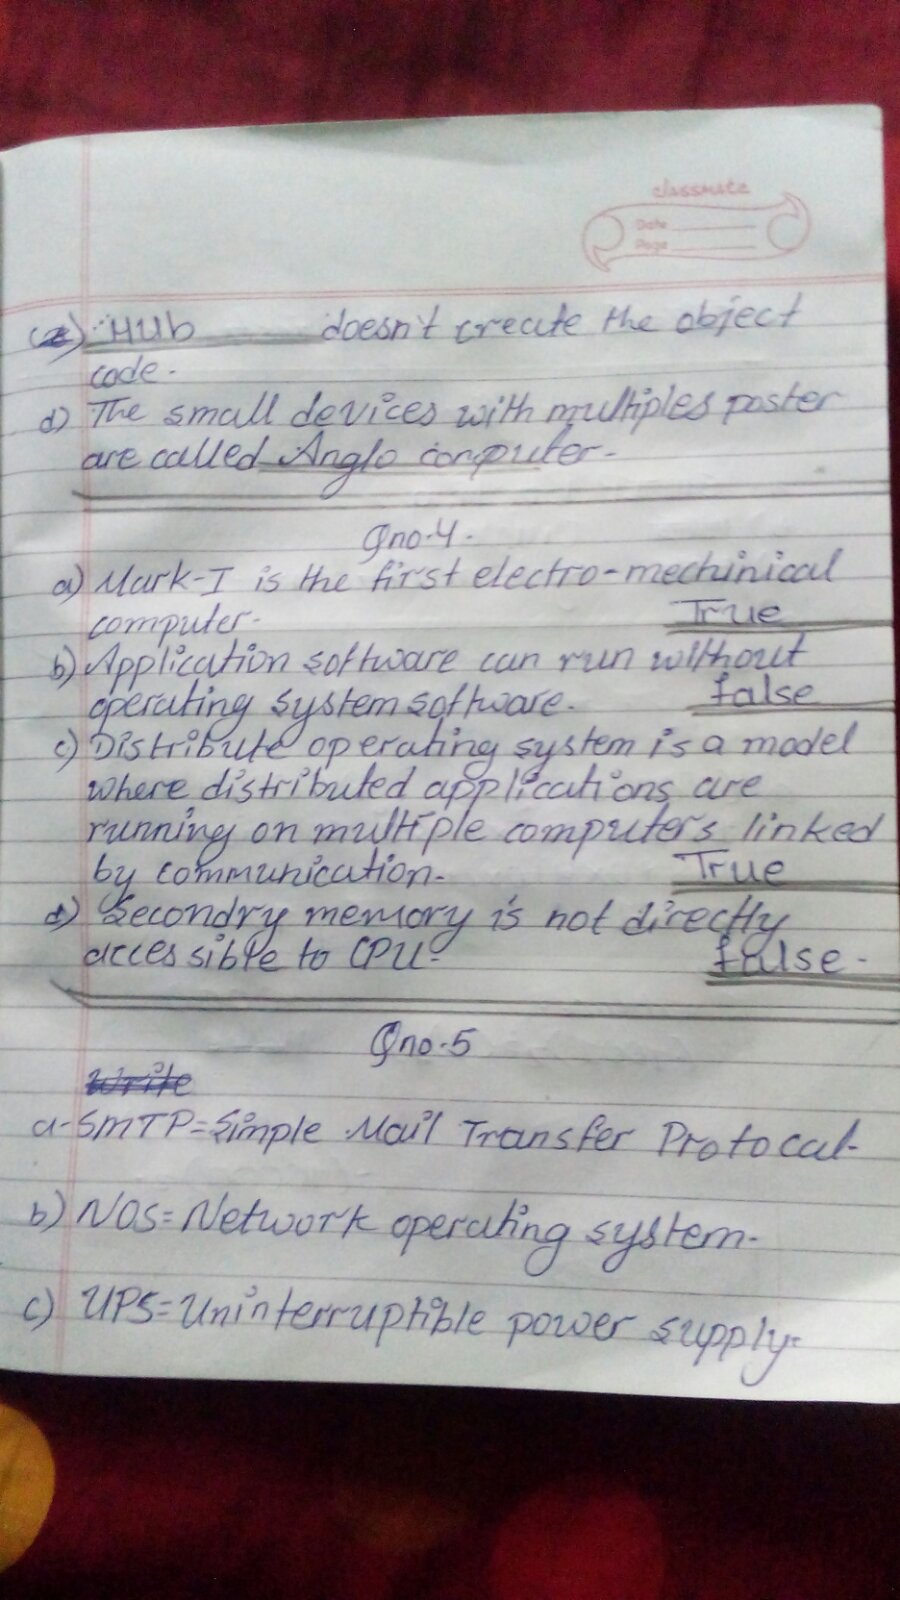 classmate
Date
Page
(c) Hub doesn't create the object
code.
d) The small devices with multiples poster
are called Anglo computer.
Qno.4.
a) Mark-I is the first electro-mechinical
computer. True
b) Application software can run without
operating system software. false
c) Distribute operating system is a model
where distributed applications are
running on multiple computers linked
by communication. True
d) Secondry memory is not directly
accessible to CPU. false.
Qno.5
Write
a- SMTP = Simple Mail Transfer Protocal.
b) NOS = Network operating system.
c) UPS = Uninterruptible power supply.